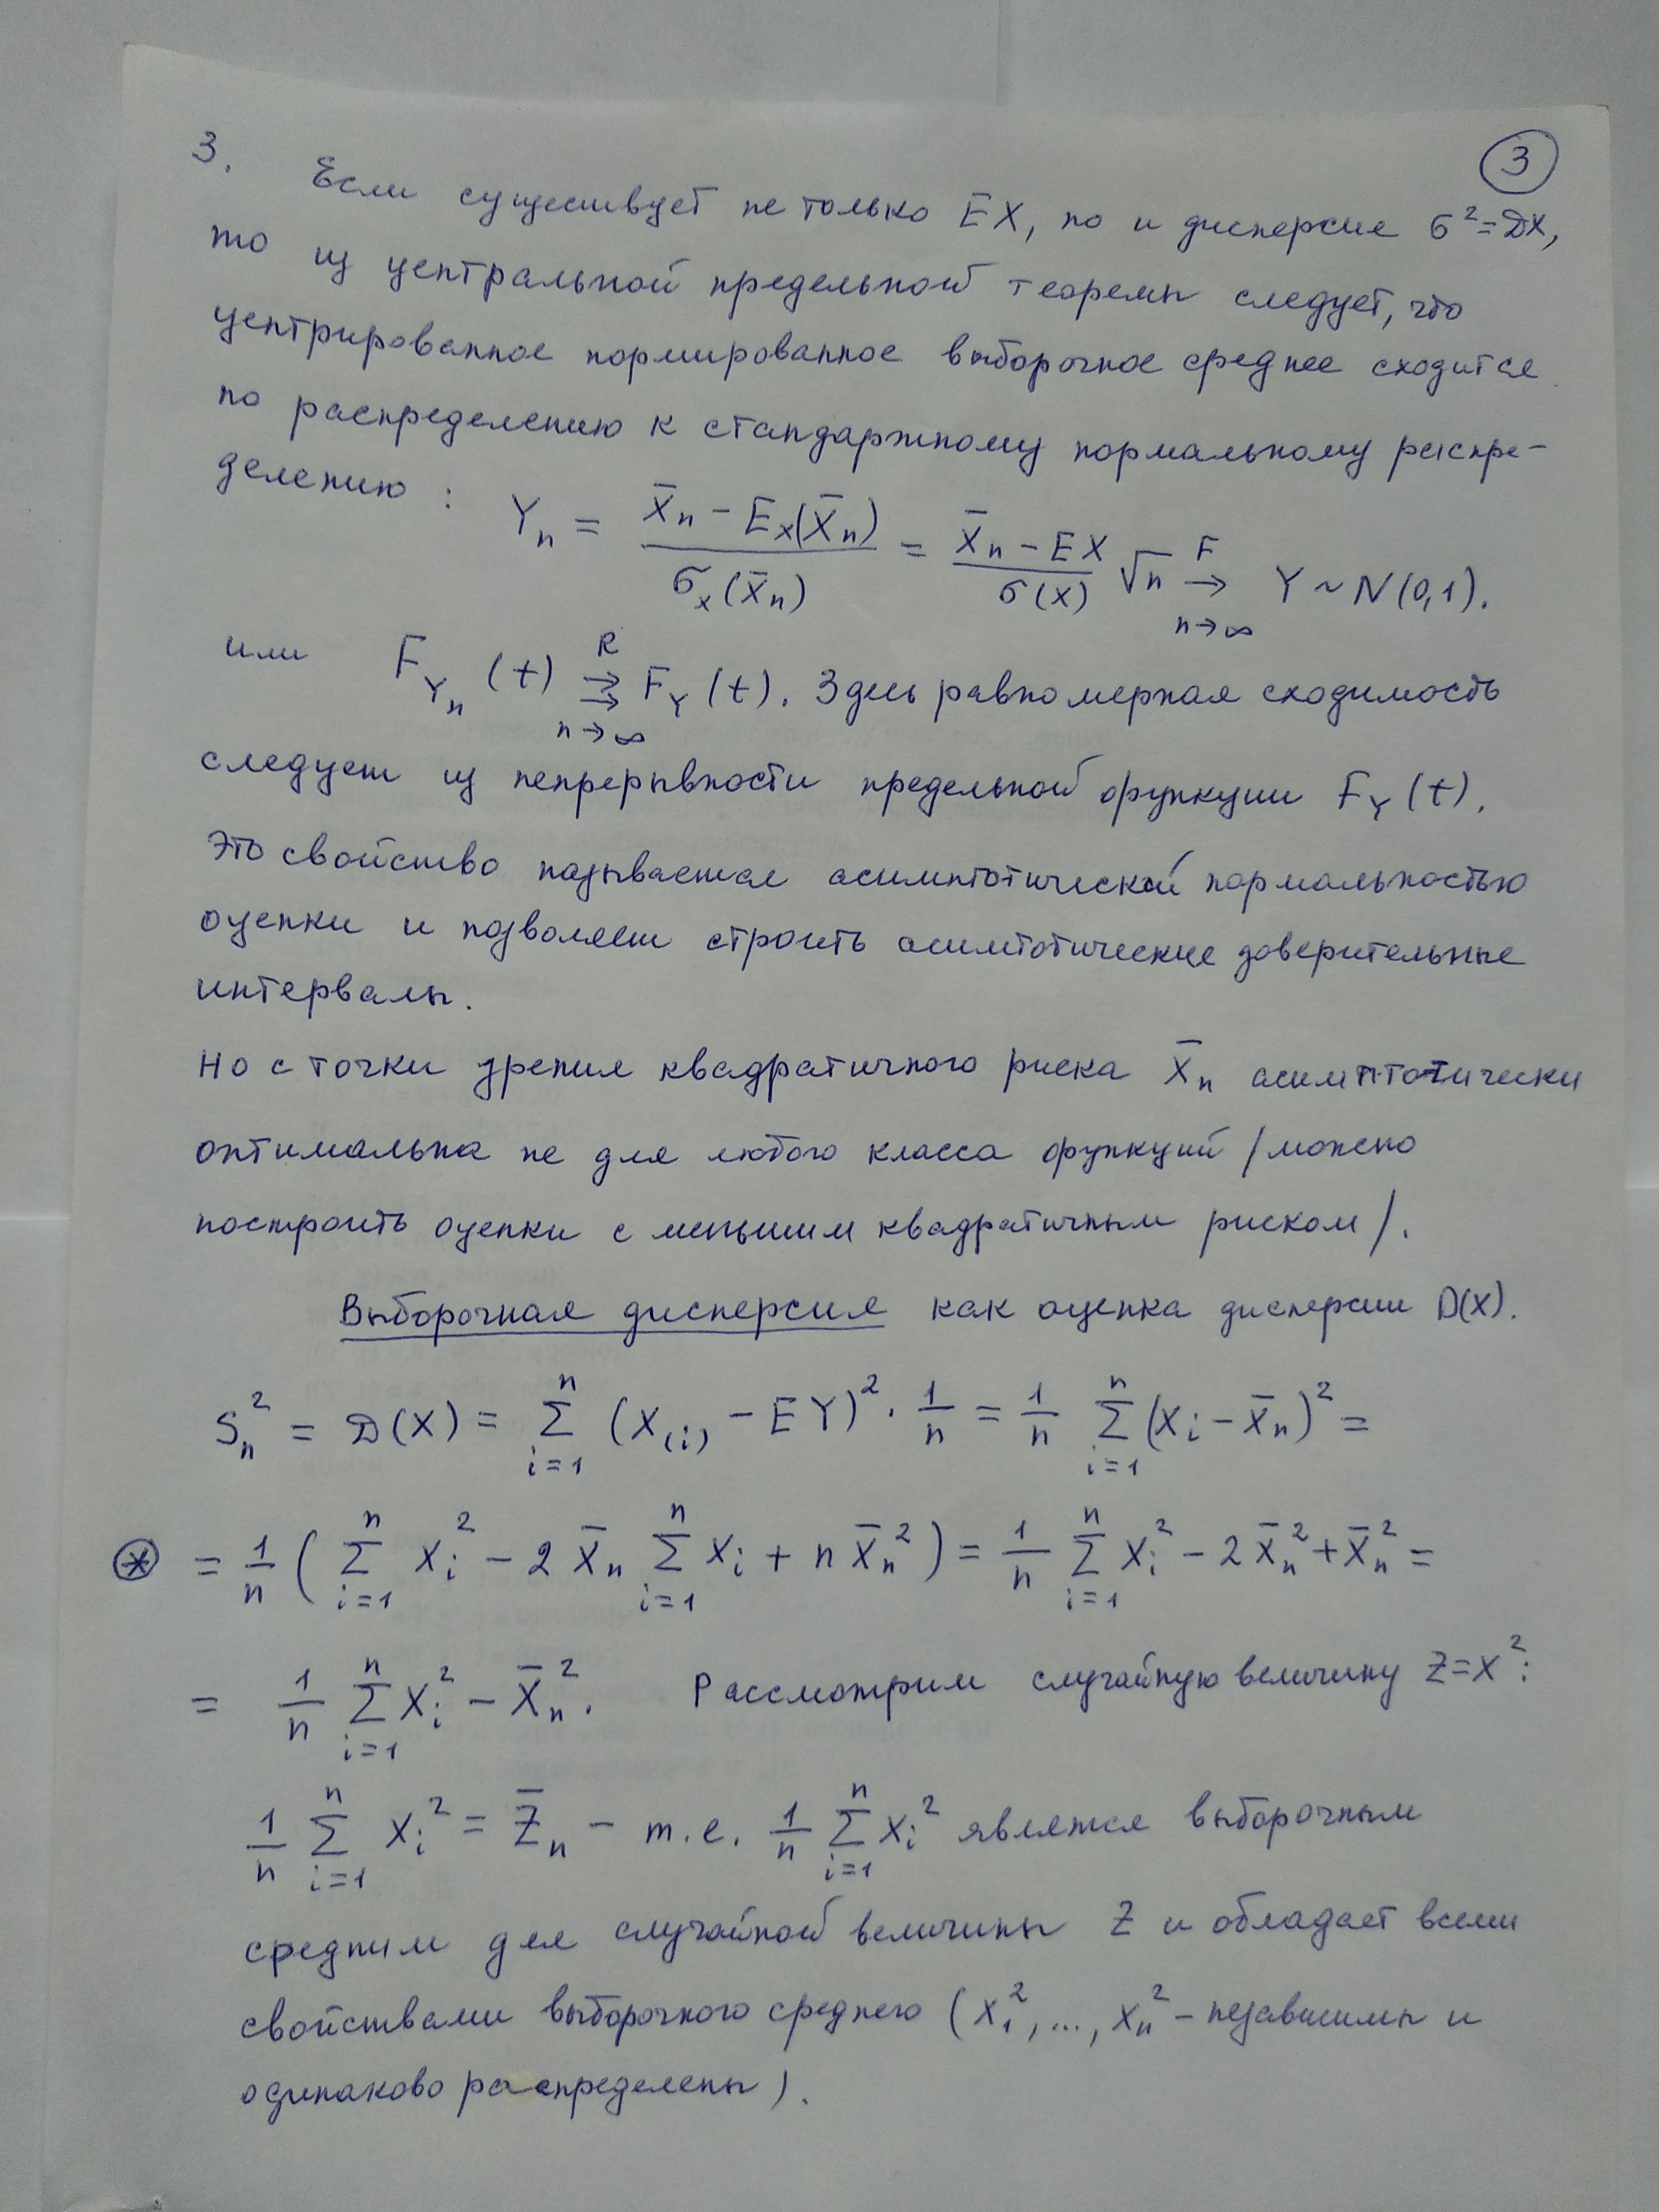 3. ③
Если существует не только EX, но и дисперсия σ²=DX,
то из центральной предельной теоремы следует, что
центрированное нормированное выборочное среднее сходится
по распределению к стандартному нормальному распре-
делению : Yₙ = (X̄ₙ - Eₓ(X̄ₙ)) / σₓ(X̄ₙ) = (X̄ₙ - EX) / σ(x) √n →^F_{n→∞} Y ~ N(0,1).
или F_{Yₙ}(t) ⇉^R_{n→∞} F_Y(t). Здесь равномерная сходимость
следует из непрерывности предельной функции F_Y(t).
Это свойство называется асимптотической нормальностью
оценки и позволяет строить асимтотические доверительные
интервалы.
Но с точки зрения квадратичного риска X̄ₙ асимптотически
оптимальна не для любого класса функций /можно
построить оценки с меньшим квадратичным риском/.
Выборочная дисперсия как оценка дисперсии D(X).
Sₙ² = D(X) = Σ_{i=1}^{n} (X_{(i)} - EY)² · 1/n = 1/n Σ_{i=1}^{n} (Xᵢ - X̄ₙ)² =
⊛ = 1/n ( Σ_{i=1}^{n} Xᵢ² - 2 X̄ₙ Σ_{i=1}^{n} Xᵢ + n X̄ₙ² ) = 1/n Σ_{i=1}^{n} Xᵢ² - 2 X̄ₙ² + X̄ₙ² =
= 1/n Σ_{i=1}^{n} Xᵢ² - X̄ₙ². Рассмотрим случайную величину Z=X²:
1/n Σ_{i=1}^{n} Xᵢ² = Z̄ₙ - т.е. 1/n Σ_{i=1}^{n} Xᵢ² является выборочным
средним для случайной величины Z и обладает всеми
свойствами выборочного среднего (X₁², ..., Xₙ² - независимы и
одинаково распределены).